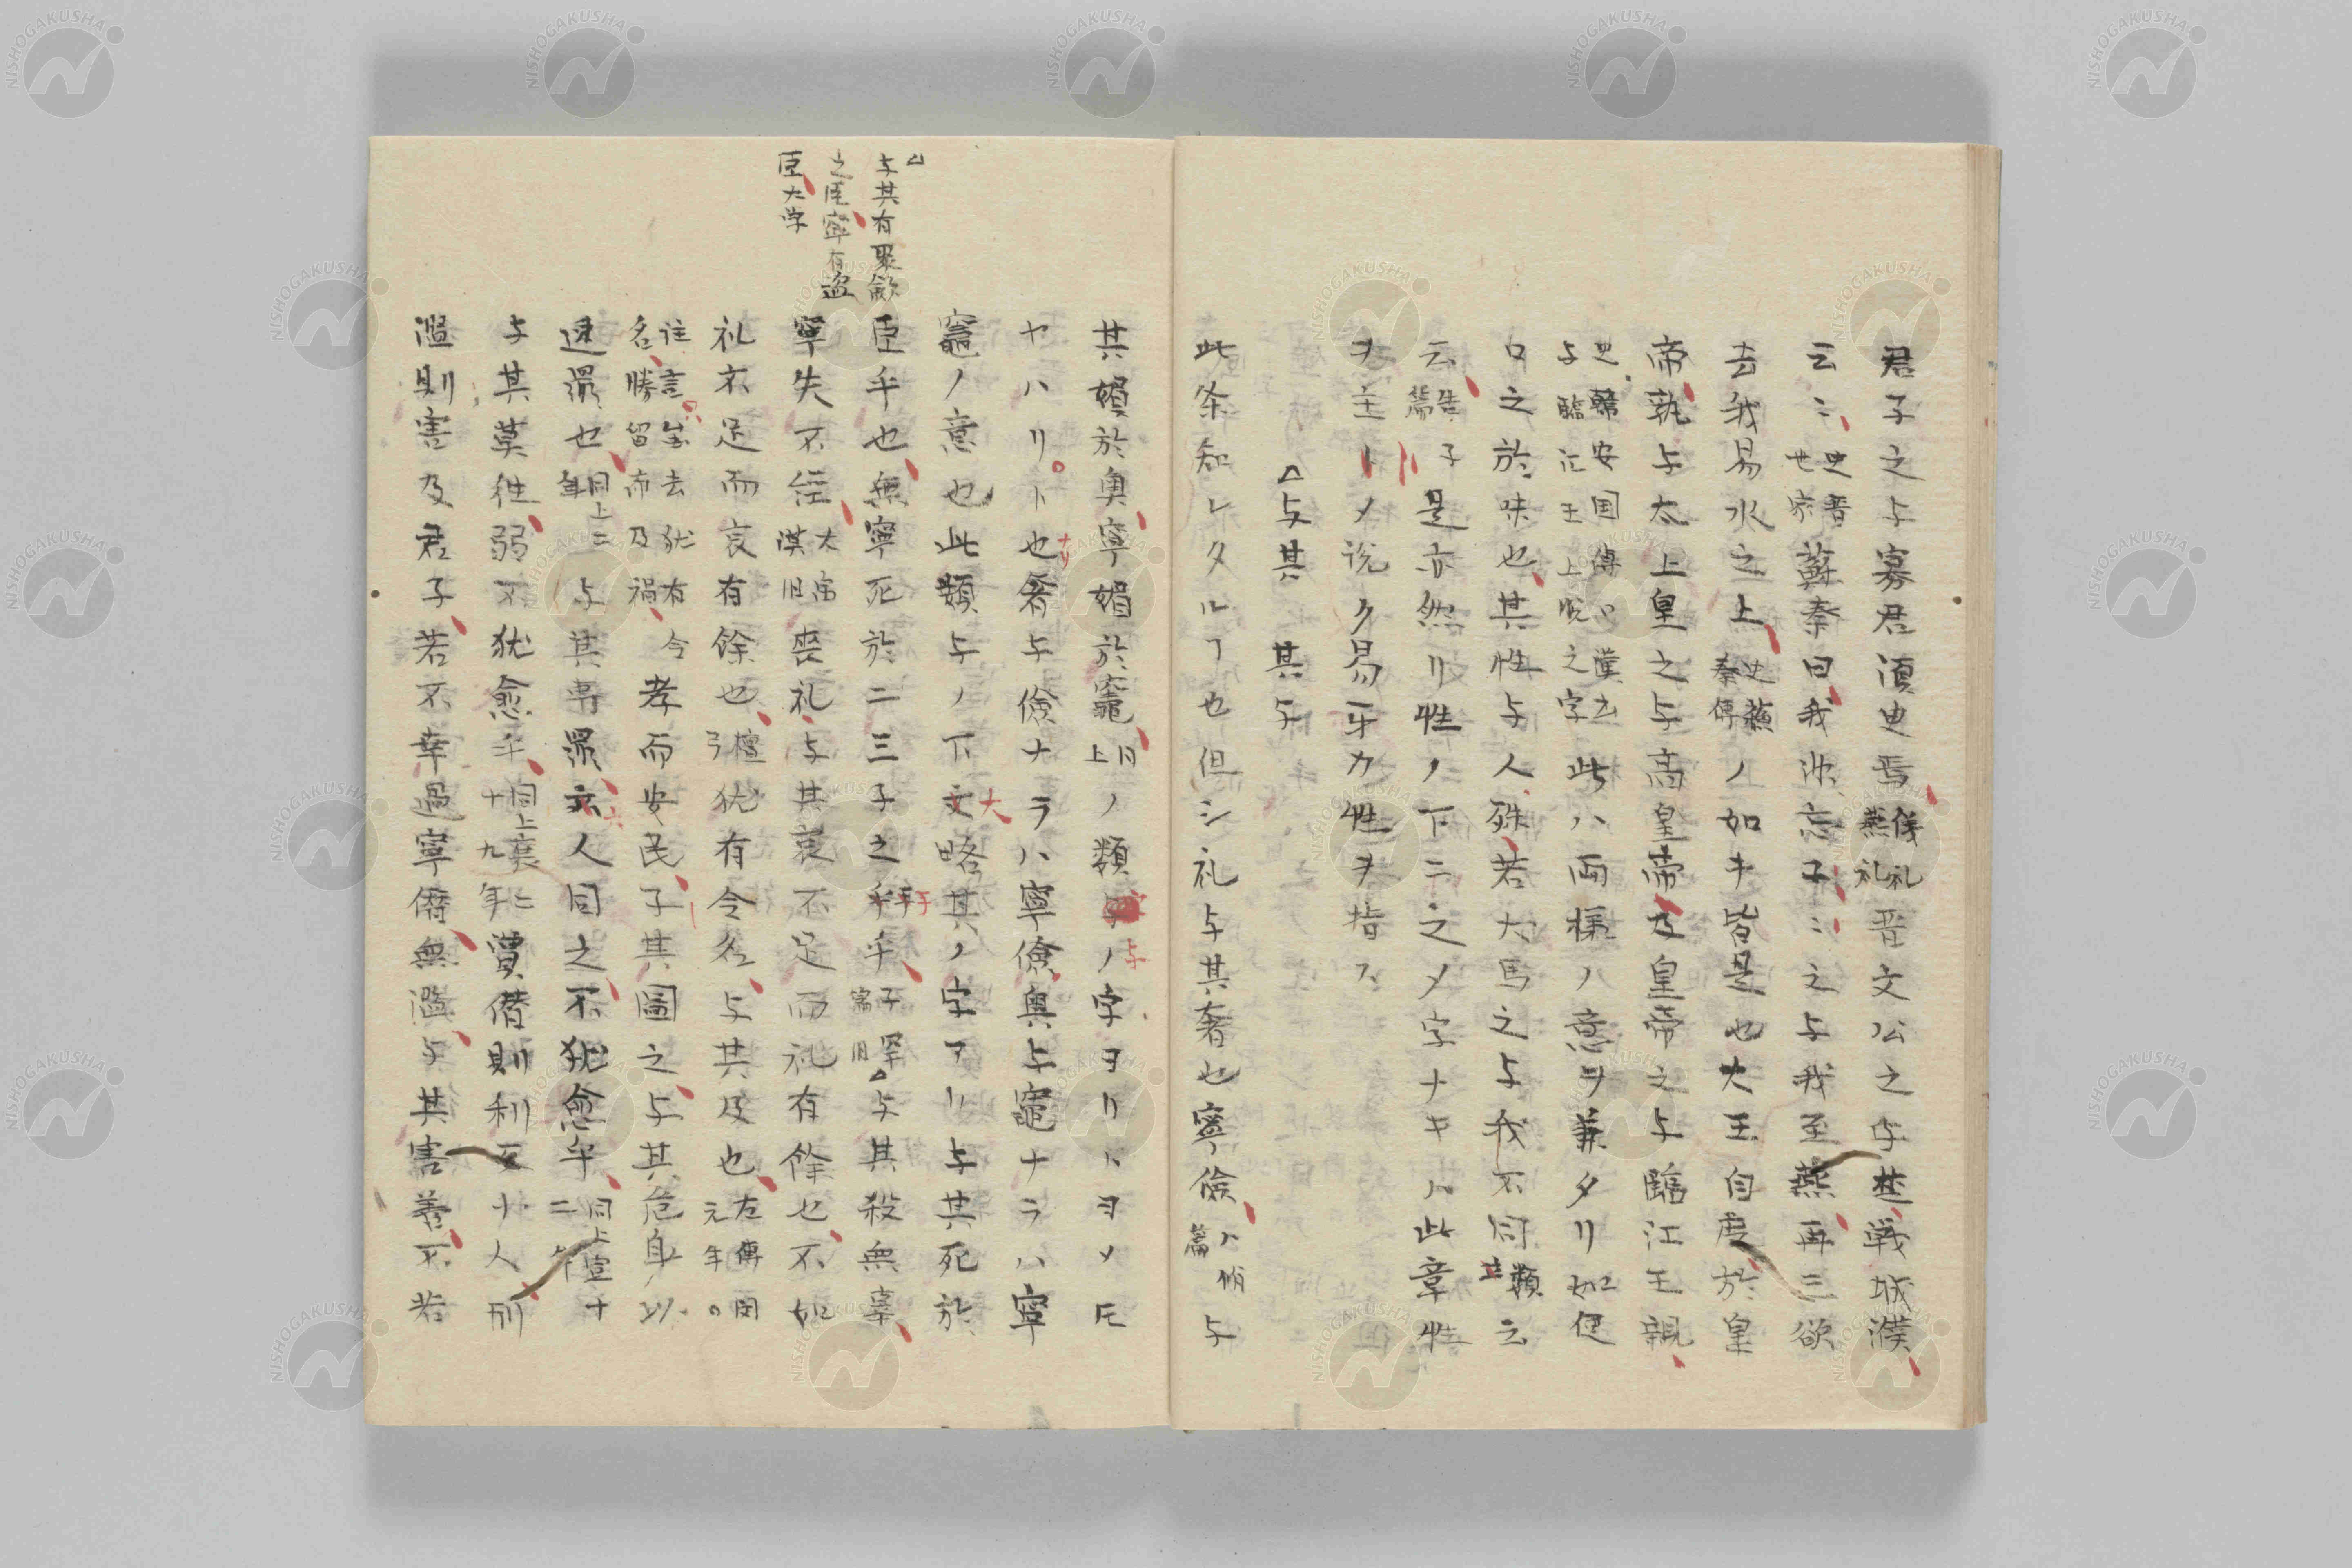 君子之与寡君須臾焉儀礼燕礼晋文公之与楚戦城濮
云〻史晋世家蘇秦曰我逃忘子〻之与我至燕再三欲
去我易水之上史蘇秦傳ノ如キ皆是也大王自度於皇
帝孰与太上皇之与高皇帝及皇帝之与臨江王親
史韓安国傳漢去与臨江王上脱之字此ハ両様ノ意ヲ兼タリ如他
口之於味也其性与人殊若犬馬之与我不同類云
云告子篇是亦然リ性ノ下ニ之〆字ナキハ此章性
ヲ主トメ说ク易牙カ性ヲ指ス
△与其 其与
此条知レタルヿ也但シ礼与其奢也寧儉八佾篇与
其媚於奥寧媚於竈同上ノ類与ノ字ヨリトヨメ𪜈
ヤハリト也奢与儉ナラハ寧儉奥与竈ナラハ寧
竈ノ意也此類与ノ下文略其ノ字アリ与其死於
臣手也無寧死於二三子之手乎子罕△与其殺無辜
寧失不経大禹謨喪礼与其哀不足而礼有餘也不如
礼不足而哀有餘也檀弓猶有令名与其及也左傳閔元年
注言虽去犹有令名勝留而及禍孝而安民子其圖之与其危身以
速罪也同上二年与其専罪六人同之不犹愈乎同上宣十二年
与其莫往弱不犹愈乎同上襄二十九年賞僭則利及小人刑
濫則害及君子若不幸過寧僭無濫与其害善不若
△与其有聚斂
之臣寧有盗
臣大学